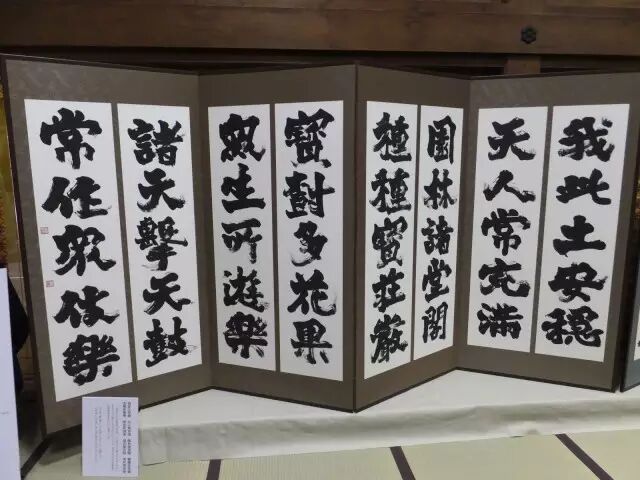 我此土安穏
天人常充滿
園林諸堂閣
種種寶莊嚴
寶樹多花果
衆生所遊樂
諸天擊天鼓
常作衆伎樂